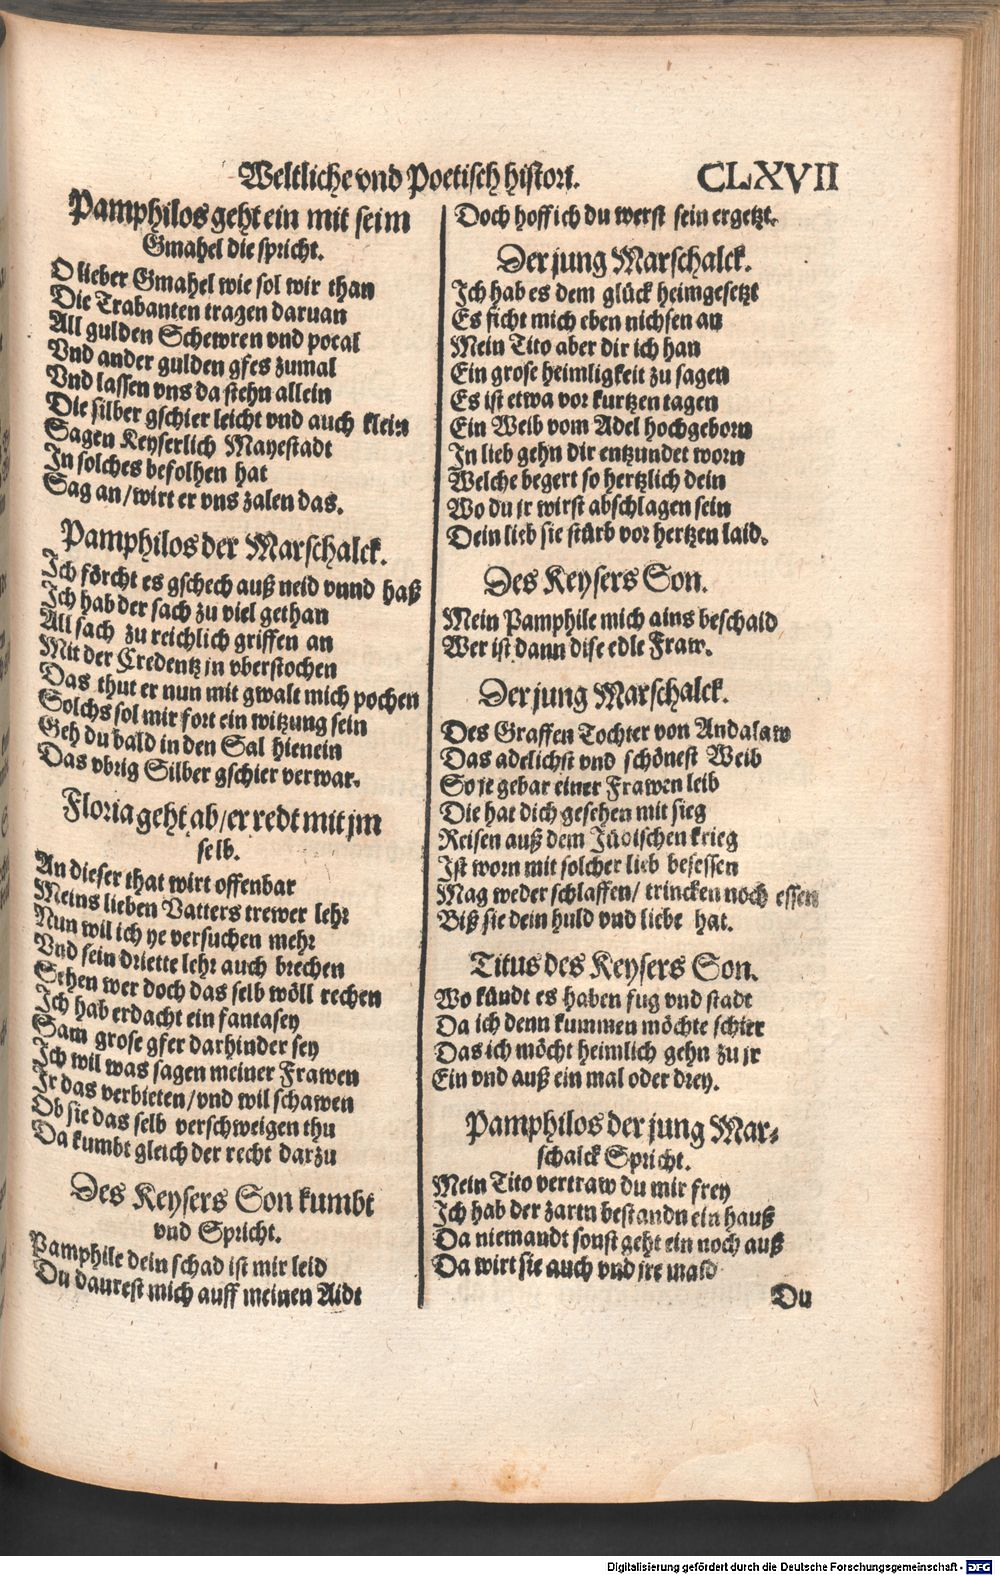 Weltliche vnd Poetisch histori. CLXVII
Pamphilos geht ein mit seim
Gmahel die spricht.
O lieber Gmahel wie sol wir than
Die Trabanten trazen daruan
All gulden Schewren vnd pocal
Vnd ander gulden gfes zumal
Vnd lassen vns da stehn allein
Die silber gschier leicht vnd auch klein
Sagen Keyserlich Mayestadt
In solches befolhen hat
Sag an/wirt er vns zalen das.
Pamphilos der Marschalck.
Ich förcht es gschech auß neid vnnd haß
Ich hab der sach zu viel gethan
All sach zu reichlich griffen an
Mit der Credentz jn vberstochen
Das thut er nun mit gwalt mich pochen
Solchs sol mir fort ein witzung sein
Geh du bald in den Sal hienein
Das vbrig Silber gschier verwar.
Floria geht ab/er redt mit jm
selb.
An dieser that wirt offenbar
Meins lieben Vatters trewer lehr
Nun wil ich ye versuchen mehr
Vnd sein driette lehr auch brechen
Sehen wer doch das selb wöll rechen
Ich hab erdacht ein fantasey
Sam grose gfer darhinder sey
Ich wil was sagen meiner Frawen
Ir das verbieten/vnd wil schawen
Ob sie das selb verschweigen thu
Da kumbt gleich der recht darzu
Des Keysers Son kumbt
vnd Spricht.
Pamphile dein schad ist mir leid
Du daurest mich auff meinen Aidt
Doch hoff ich du werst sein ergetzt.
Der jung Marschalck.
Ich hab es dem glück heimgesetzt
Es ficht mich eben nichsen an
Mein Tito aber dir ich han
Ein grose heimligkeit zu sagen
Es ist etwa vor kurtzen tagen
Ein Weib vom Adel hochgeborn
In lieb gehn dir entzundet worn
Welche begert so hertzlich dein
Wo du jr wirst abschlagen sein
Dein lieb sie stürb vor hertzen laid.
Des Keysers Son.
Mein Pamphile mich ains beschaid
Wer ist dann dise edle Fraw.
Der jung Marschalck.
Des Graffen Tochter von Andalaw
Das adelichst vnd schönest Weib
So je gebar einer Frawen leib
Die hat dich gesehen mit sieg
Reisen auß dem Jüdischen krieg
Ist worn mit solcher lieb besessen
Mag weder schlaffen/ trincken noch essen
Biß sie dein huld vnd liebe hat.
Titus des Keysers Son.
Wo kündt es haben fug vnd stadt
Da ich denn kummen möchte schier
Das ich möcht heimlich gehn zu jr
Ein vnd auß ein mal oder drey.
Pamphilos der jung Mar-
schalck Spricht.
Mein Tito vertraw du mir frey
Ich hab der zartn bestandn ein hauß
Da niemandt sonst geht ein noch auß
Da wirt sie auch vnd jre maid
Du
Digitalisierung gefördert durch die Deutsche Forschungsgemeinschaft - DFG